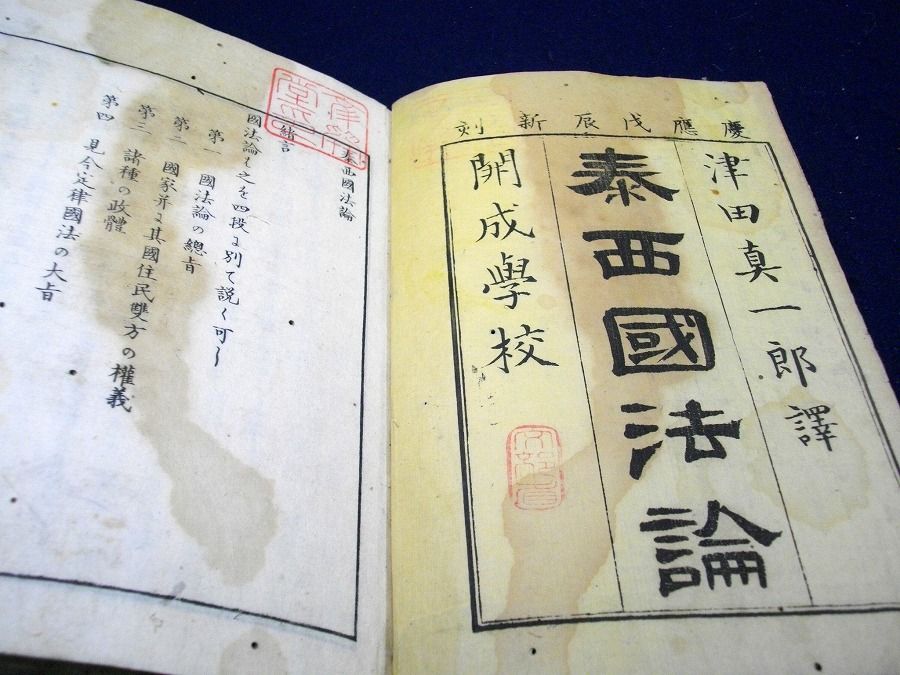 慶應戊辰新刻
津田真一郎譯
泰西國法論
開成學校
泰西國法論
緒言
國法論も之を四段に別て説く可し
第一 國法論の總旨
第二 國家并に其國住民雙方の權義
第三 諸種の政體
第四 見今定律國法の大旨